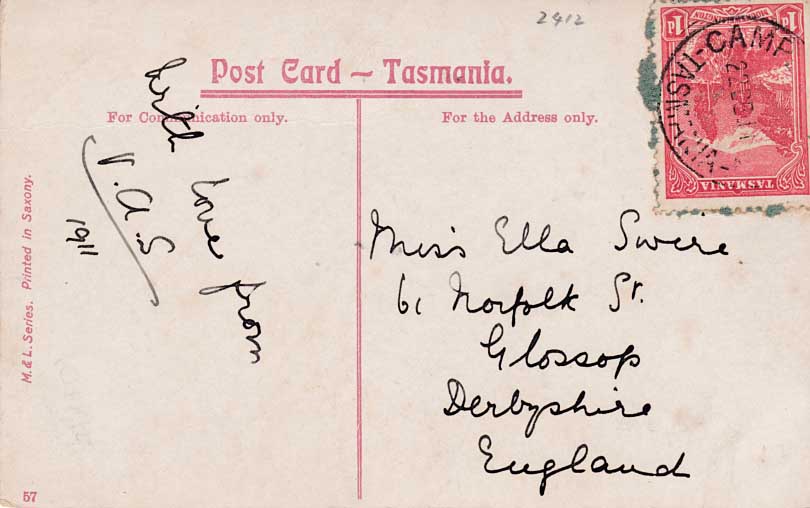 2412
Post Card – Tasmania.
For Communication only.
For the Address only.
With love from
V.A.S
1911
Miss Ella Swire
61 Norfolk St.
Glossop
Derbyshire
England
M. & L. Series. Printed in Saxony.
57
1d 1d
TASMANIA